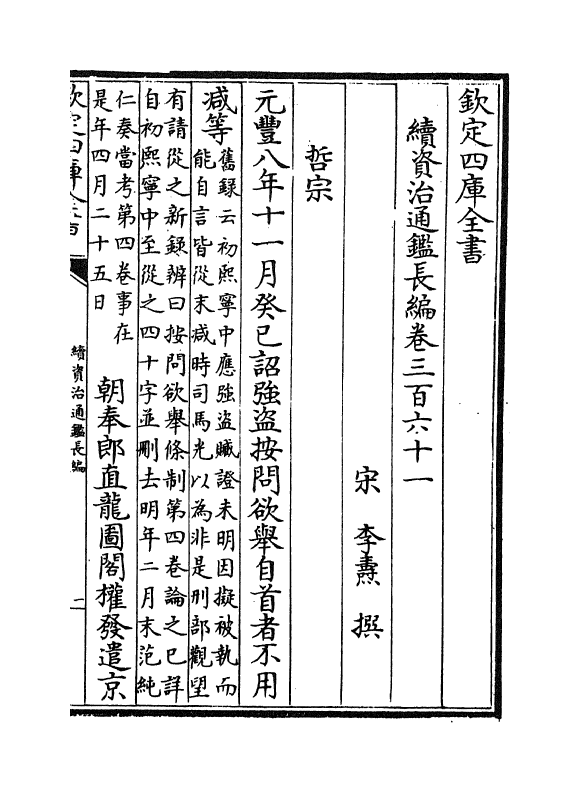 欽定四庫全書
續資治通鑑長編卷三百六十一
宋 李燾 撰
哲宗
元豐八年十一月癸巳詔強盜按問欲舉自首者不用
減等
舊録云初熙寧中應強盜贓證未明因擬被執而
能自言皆從末减時司馬光以為非是刑部觀望
有請從之新録辨曰按問欲舉條制第四卷論之已詳
自初熙寧中至從之四十字並刪去明年二月末范純
仁奏當考第四卷事在
是年四月二十五日
朝奉郎直龍圖閣權發遣京
欽定四庫全書
續資治通鑑長編